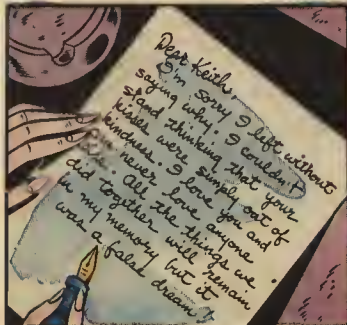 Dear Keith,
I'm sorry I left without
saying why. I couldn't
stand thinking that your
kisses were simply out of
kindness. I love you and
never love anyone
did. All the things we
did together will remain
in my memory but it
was a false dream